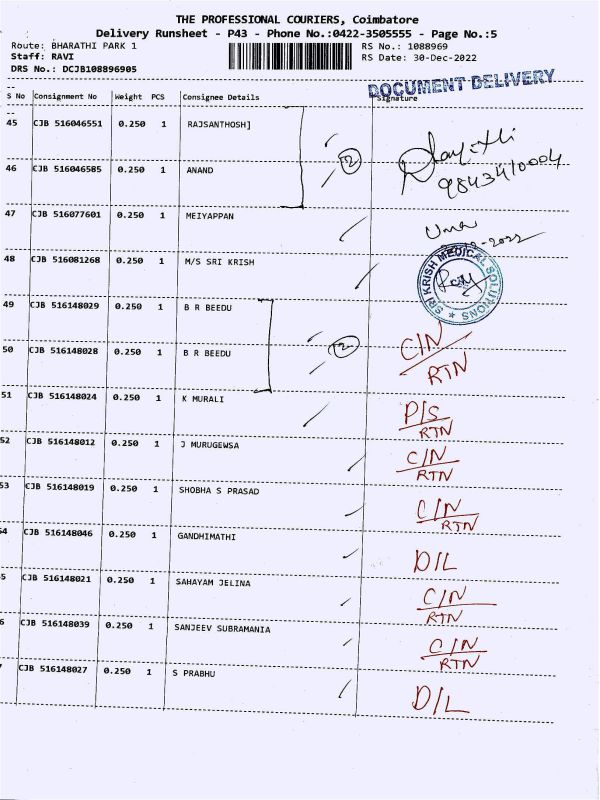 THE PROFESSIONAL COURIERS, Coimbatore
Delivery Runsheet - P43 - Phone No.:0422-3505555 - Page No.:5
Route: BHARATHI PARK 1 RS No.: 1088969
Staff: RAVI RS Date: 30-Dec-2022
DRS No.: DCJB108896905
DOCUMENT DELIVERY
S No Consignment No Weight PCS Consignee Details Signature
45 CJB 516046551 0.250 1 RAJSANTHOSH]
2
9843410004
46 CJB 516046585 0.250 1 ANAND
47 CJB 516077601 0.250 1 MEIYAPPAN Uma
48 CJB 516081268 0.250 1 M/S SRI KRISH
SRI KRISH MEDICAL SOLUTIONS
49 CJB 516148029 0.250 1 B R BEEDU
2 C/N
RTN
50 CJB 516148028 0.250 1 B R BEEDU
51 CJB 516148024 0.250 1 K MURALI P/S
RTN
52 CJB 516148012 0.250 1 J MURUGEWSA C/N
RTN
53 CJB 516148019 0.250 1 SHOBHA S PRASAD C/N
RTN
54 CJB 516148046 0.250 1 GANDHIMATHI D/L
5 CJB 516148021 0.250 1 SAHAYAM JELINA C/N
RTN
6 CJB 516148039 0.250 1 SANJEEV SUBRAMANIA C/N
RTN
7 CJB 516148027 0.250 1 S PRABHU D/L